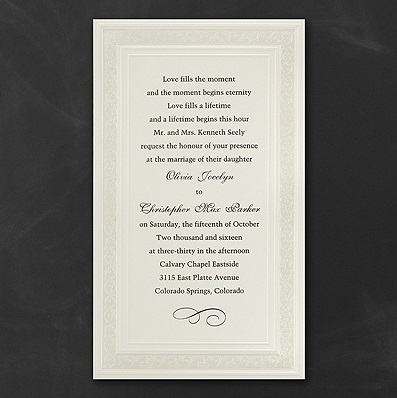 Love fills the moment
and the moment begins eternity
Love fills a lifetime
and a lifetime begins this hour
Mr. and Mrs. Kenneth Seely
request the honour of your presence
at the marriage of their daughter
Olivia Jocelyn
to
Christopher Max Parker
on Saturday, the fifteenth of October
Two thousand and sixteen
at three-thirty in the afternoon
Calvary Chapel Eastside
3115 East Platte Avenue
Colorado Springs, Colorado